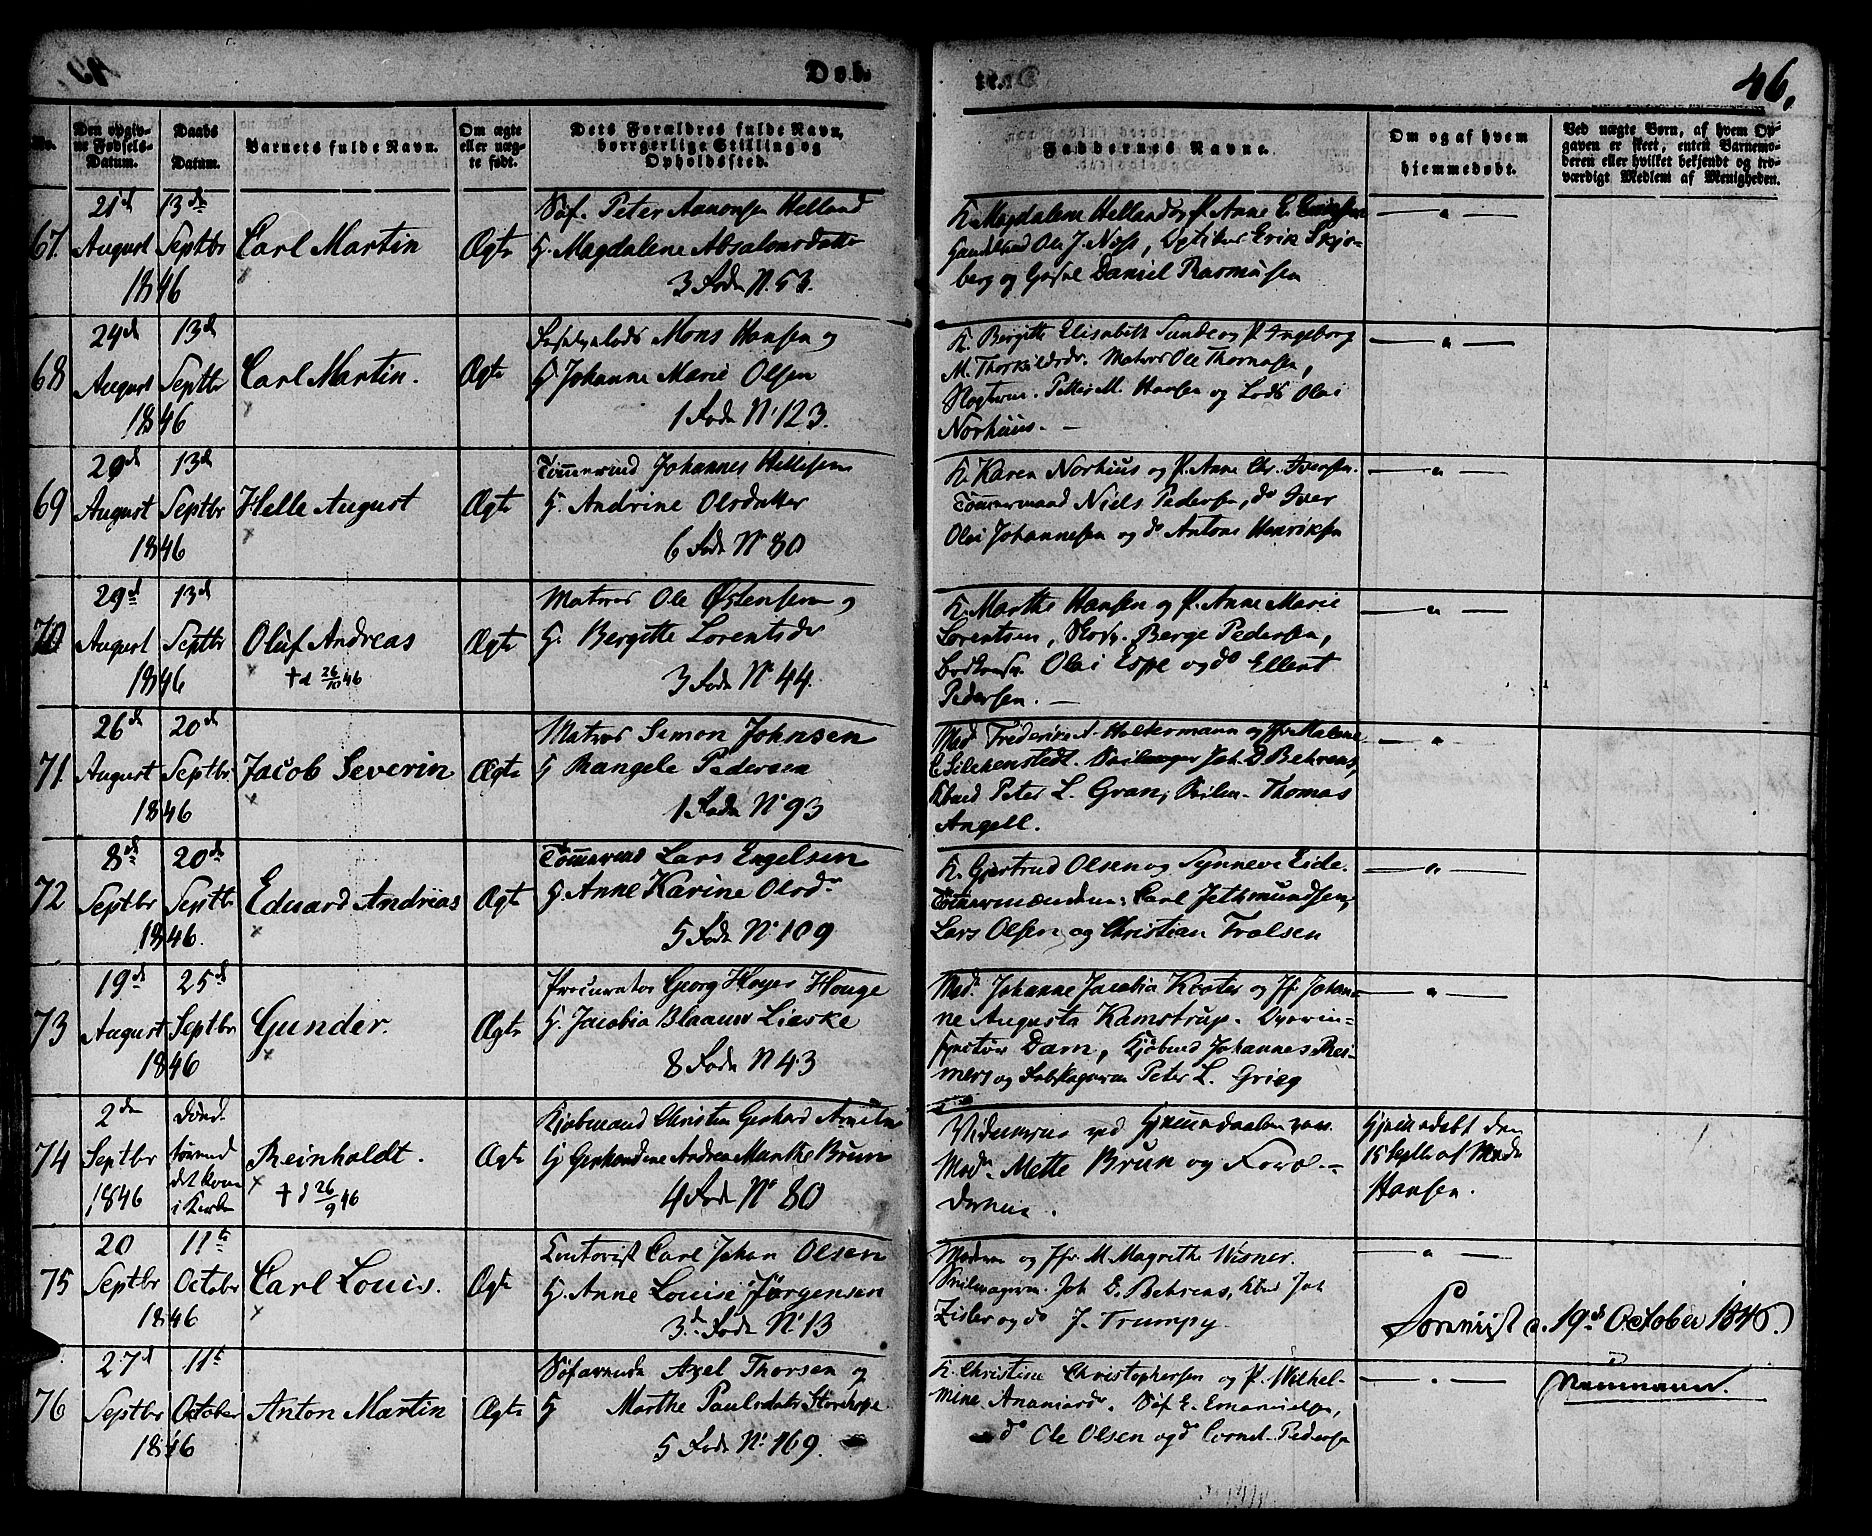 Døb
46.
No.
Den opgiv-
ne Fødsels-
Datum.
Daabs
Datum.
Barnets fulde Navn.
Om ægte
eller uæg-
te født.
Dets Forældres fulde Navn,
borgerlige Stilling og
Opholdssted.
Faddernes Navne.
Om og af hvem
hjemmedøbt.
Ved uægte Børn, af hvem Op-
gaven er skeet, enten Barnemo-
deren eller hvilket bekjendt og tro-
værdigt Medlem af Menigheden.
67.
21d
August
1846
13de
Septbr
Carl Martin
Ægte
Søf. Peter Aanonsen Helland
H. Magdalene Absalonsdatter
3 Rode No 53.
K. Magdalene Helland og P. Anne E.
Ole J. Næss, Optiker Erik Skjo-
berg og Daniel Rasmusen
68
24d
August
1846
13d
Septbr
Carl Martin.
Ægte
Mons Hansen og
H Johanne Marie Olsen
1 Rode No 123.
K. Bergitte Elisabeth Sunde og P. Ingeborg
M. Thorkildsdr. Matros Ole Thomasen,
Petter M. Hansen og Lods Olai
Norhuus. —
69
29d
August
1846
13d
Septbr
Helle August
Ægte
Tømmermd Johannes Hellesen
H. Andrine Olsdatter
6 Rode No 80
K. Karen Norhuus og P. Anne Chr. Iversen.
Tømmermand Niels Pedersen, do Iver
Olai Johannesen og do Antone Henriksen
70
29d
August
1846
13d
Septbr
Oluf Andreas
† d 26/10 46
Ægte
Matros Ole Østensen og
H. Bergitte Lorentsdr
3 Rode No 44.
K. Marthe Hansen og P. Anne Marie
Lorentsen, Skom. Berge Pedersen,
Olai Espe og do Ellert
Pedersen. —
71
26de
August
1846
20de
Septbr
Jacob Severin
Ægte
Matros Simon Johnsen
H Rangele Pedersen
1 Rode No 93
Mad. Frederike A. Holtermann og Jfr Malene
E Silchenstedt. Seilmager Joh. D. Behrens,
Peter L. Gran, Seilm. Thomas
Angell.
72
8de
Septbr
1846.
20de
Septbr
Eduard Andreas
Ægte
Tømmermd Lars Engelsen
H. Anne Karine Olsdr
5 Rode No 109
K. Gjertrud Olsen og Synneve Eide.
Tømmermændene: Carl Jethmundsen,
Lars Olsen og Christian Troelsen
73
19de
August
1846
25de
Septbr
Gunder.
Ægte
Procurator Georg Høyer Houge
H. Jacobia Blaauw Lieske
8 Rode No 43
Mad. Johanne Jacobia Koster og Jfr Johan-
ne Augusta Kamstrup.
Dam, Kjøbmd Johannes Rei-
mers og Peter L. Grieg
74
2den
Septbr
1846
det kom
i Kirken
Reinholdt.
† d 26/9 46
Ægte
Kjøbmand Christen Gerhard
H Andrea Marthe Brun
4 Rode No 80
Vidnerne ved Hjemmedaaben vare
Mad. Mette Brun og Foræl-
drene.
Hjemmedøbt den
15 Septbr af Mad.
Hansen.
75
20
Septbr
1846
11te
October
Carl Louis.
Ægte
Contorist Carl Johan Olsen
H. Anne Louise Jørgensen
3de Rode No 13
Madam og Jfr M. Magrethe Wisner.
Seilmager Joh D. Behrens, Joh
Zisler og do J. Trumpy
Forevist d. 19de October 1846.
76
27d
Septbr
1846
11te
October
Anton Martin
Ægte
Søfarende Axel Thorsen og
H Marthe Paulsdatter
5 Rode No 169.
K. Christine Christophersen og P. Wilhel-
mine Ananiasdr. Søf E. Emanuelsen,
do Ole Olsen og do Cornel. Pedersen
Neumann.